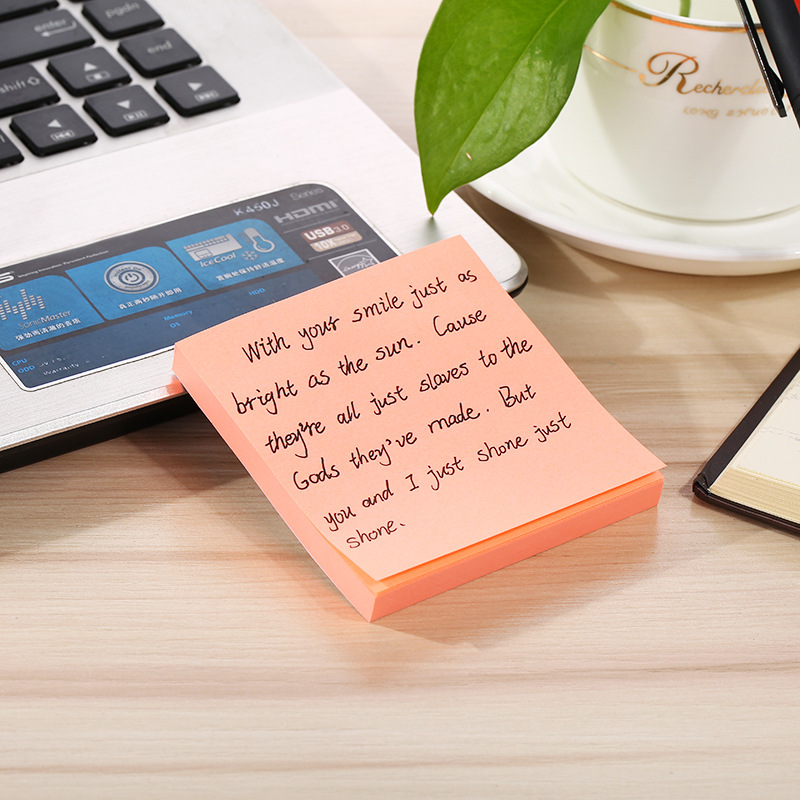 enter
pgdn
end
shift
K450J Series
HDMI
USB3.0
10X
IceCool
SonicMaster
CPU
Memory
HDD
ODD
OS
Warranty
With your smile just as
bright as the sun. Cause
they're all just slaves to the
Gods they've made. But
you and I just shone just
shone.